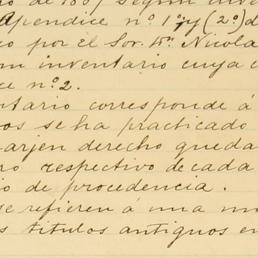 de 1887 según
apendice nº 1º y (2º) d
co por el Sor. Dn. Nicola
un inventario cuya c
ce nº 2.
ntario corresponde á
os se ha practicado
arjen derecho queda
ro respectivo de cada
io de procedencia.
se refieren á una m
s titulos antiguos en